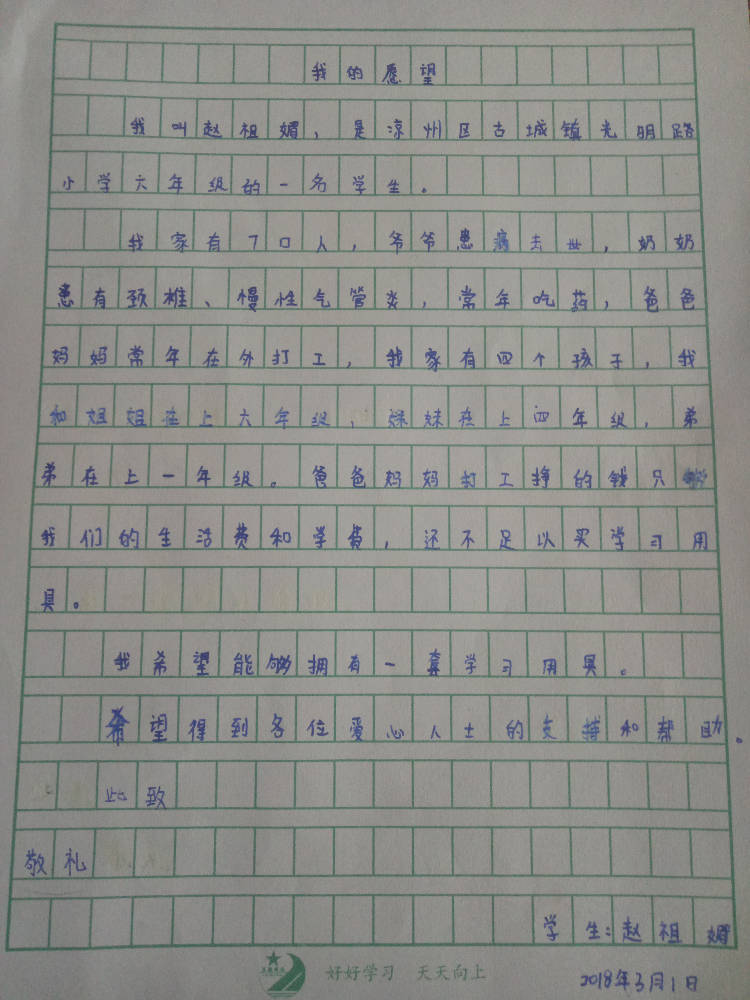 我的愿望
我叫赵祖媚，是凉州区古城镇光明路
小学六年级的一名学生。
我家有7口人，爷爷患病去世，奶奶
患有颈椎、慢性气管炎，常年吃药，爸爸
妈妈常年在外打工，我家有四个孩子，我
和姐姐在上六年级，妹妹在上四年级，弟
弟在上一年级。爸爸妈妈打工挣的钱只够
我们的生活费和学费，还不足以买学习用
具。
我希望能够拥有一套学习用具。
希望得到各位爱心人士的支持和帮助。
此致
敬礼
学生：赵祖媚
好好学习 天天向上
2018年3月1日